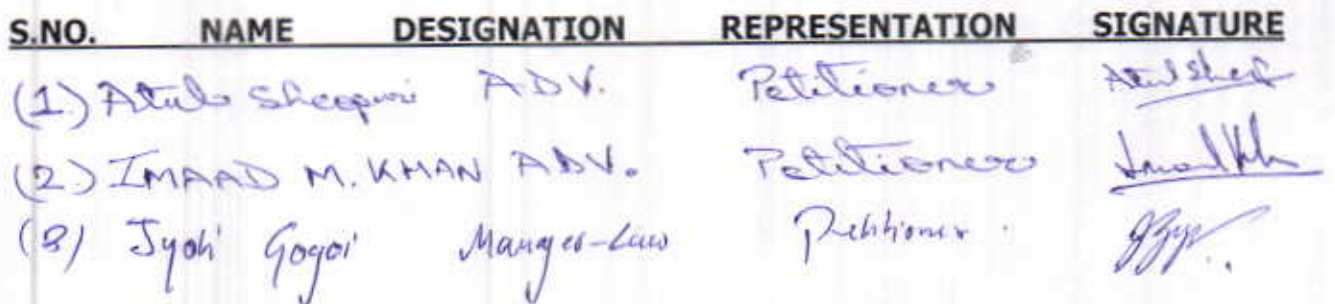 S.NO. NAME DESIGNATION REPRESENTATION SIGNATURE
(1.) Atul ADV. Petitioner Atul
(2.) IMAAD M. KHAN ADV. Petitioner
(3) Jyoti Gogoi Manager-Law Petitioner.